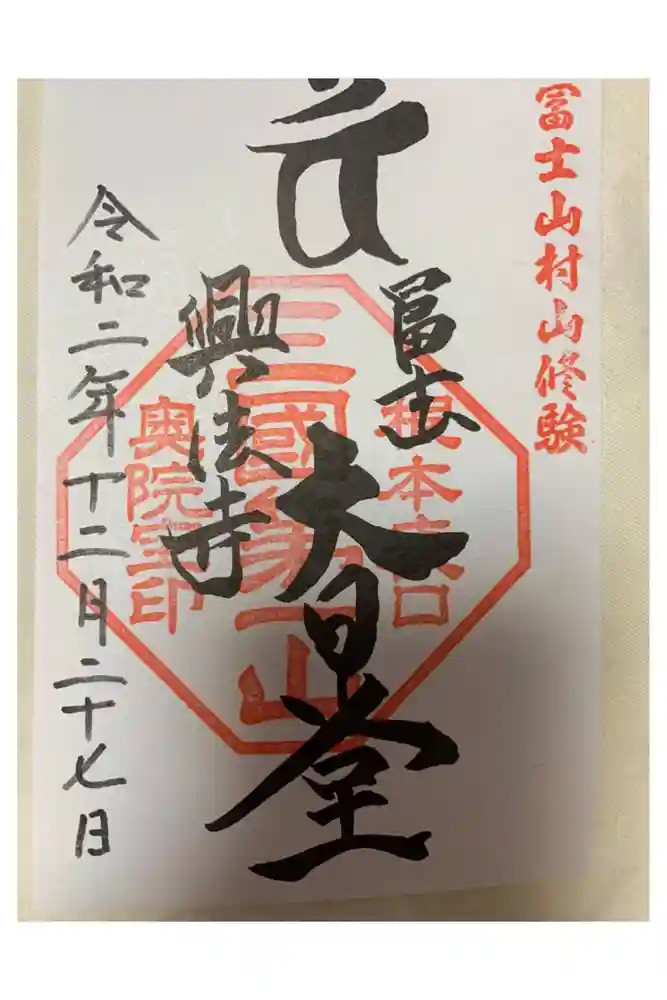 冨士山村山修験
冨士
大日堂
興法寺
根本宮口
三國第一山
奥院宝印
令和二年十二月二十七日